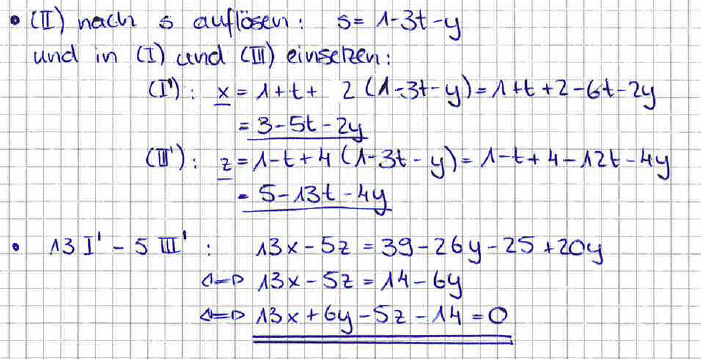 • (II) nach s auflösen: s = 1-3t-y
und in (I) und (III) einsetzen:
(I'): x = 1+t+ 2(1-3t-y) = 1+t+2-6t-2y
= 3-5t-2y
(III'): z = 1-t+4(1-3t-y) = 1-t+4-12t-4y
= 5-13t-4y
• 13 I' - 5 III': 13x-5z = 39-26y-25+20y
<=> 13x-5z = 14-6y
<=> 13x+6y-5z-14 = 0